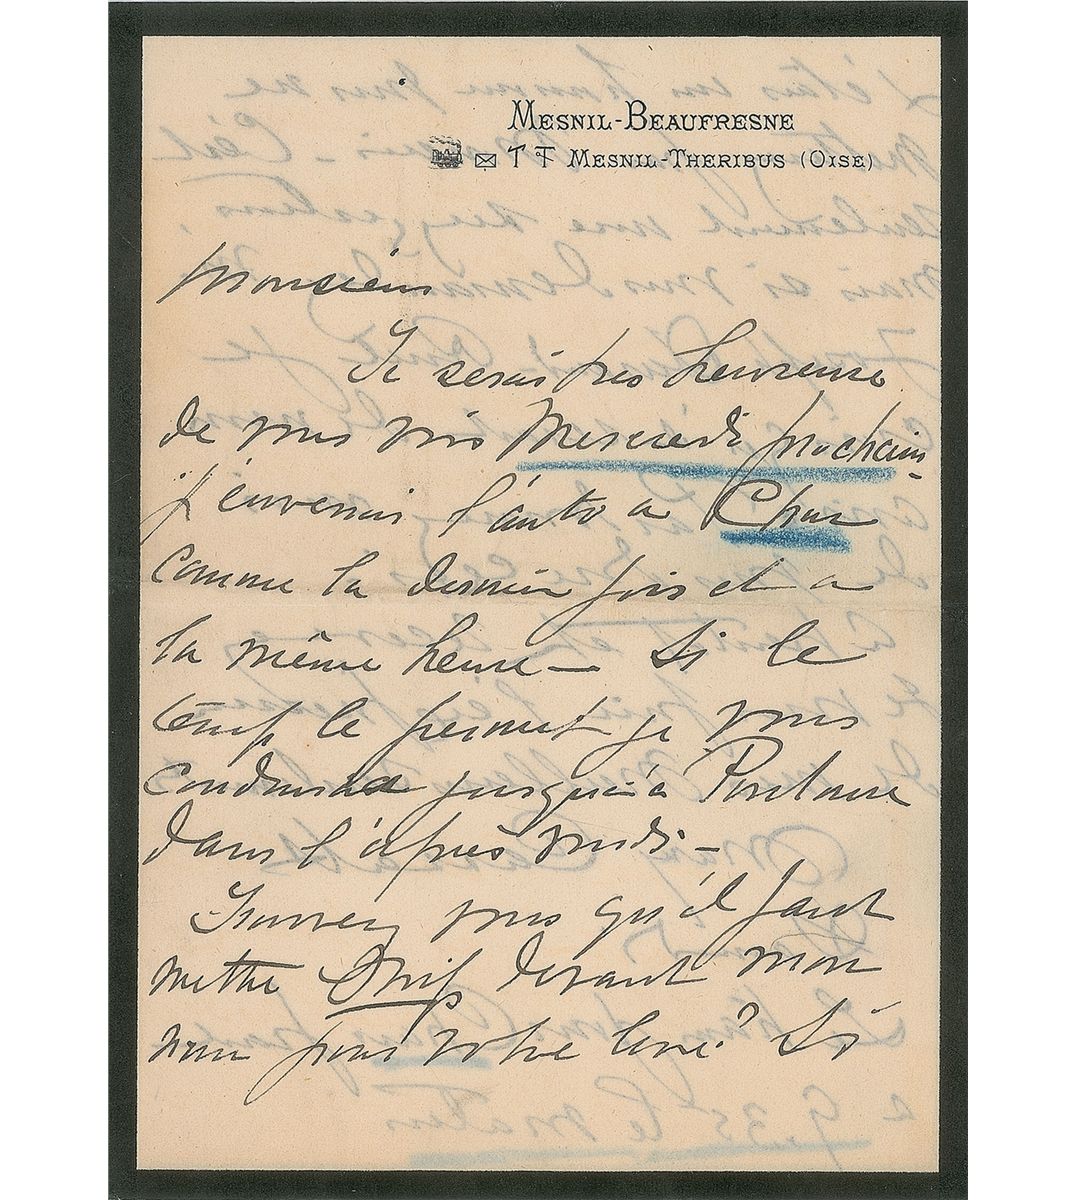 MESNIL-BEAUFRESNE
MESNIL-THERIBUS (OISE)
Monsieur
Je serais très heureuse
de vous voir Mercredi prochain
j'enverrai l'auto a Chars
comme la dernière fois et a
la même heure — Si le
temps le permet je vous
conduirai jusqu'à Pontoise
dans l'après midi —
Trouvez vous qu'il faut
mettre devant mon
nom pour votre livre? Si